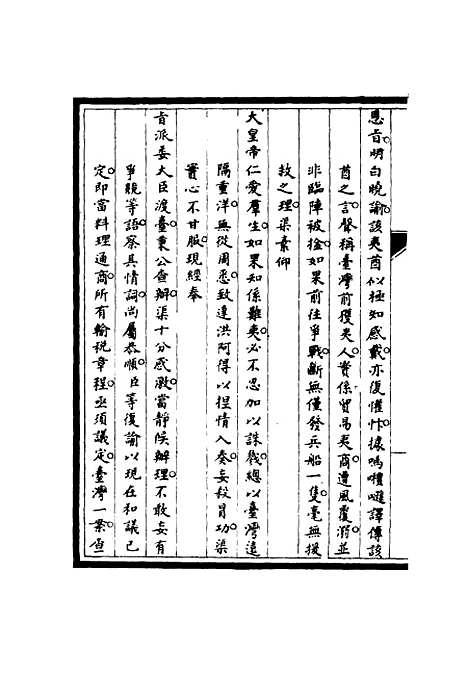 恩旨明白曉諭該夷酋似極知感戴亦復懼忭據嗎禮遜譯傳該
酋之言聲稱臺灣前獲夷人實係貿易夷商遭風覆溺並
非臨陣被捡如果前往爭戰斷無僅發兵船一隻毫無援
救之理渠素仰
大皇帝仁愛羣生如果知係難夷必不忍加以誅戮總以臺灣遠
隔重洋無從周悉致達洪阿得以捏情入奏妄殺冒功渠
實心不甘服現經奉
旨派委大臣渡臺秉公查辦渠十分感激當靜候辦理不敢妄有
爭競等語察其情詞尚屬恭順臣等復諭以現在和議已
定即當料理通商所有輸稅章程亟須議定臺灣一案查